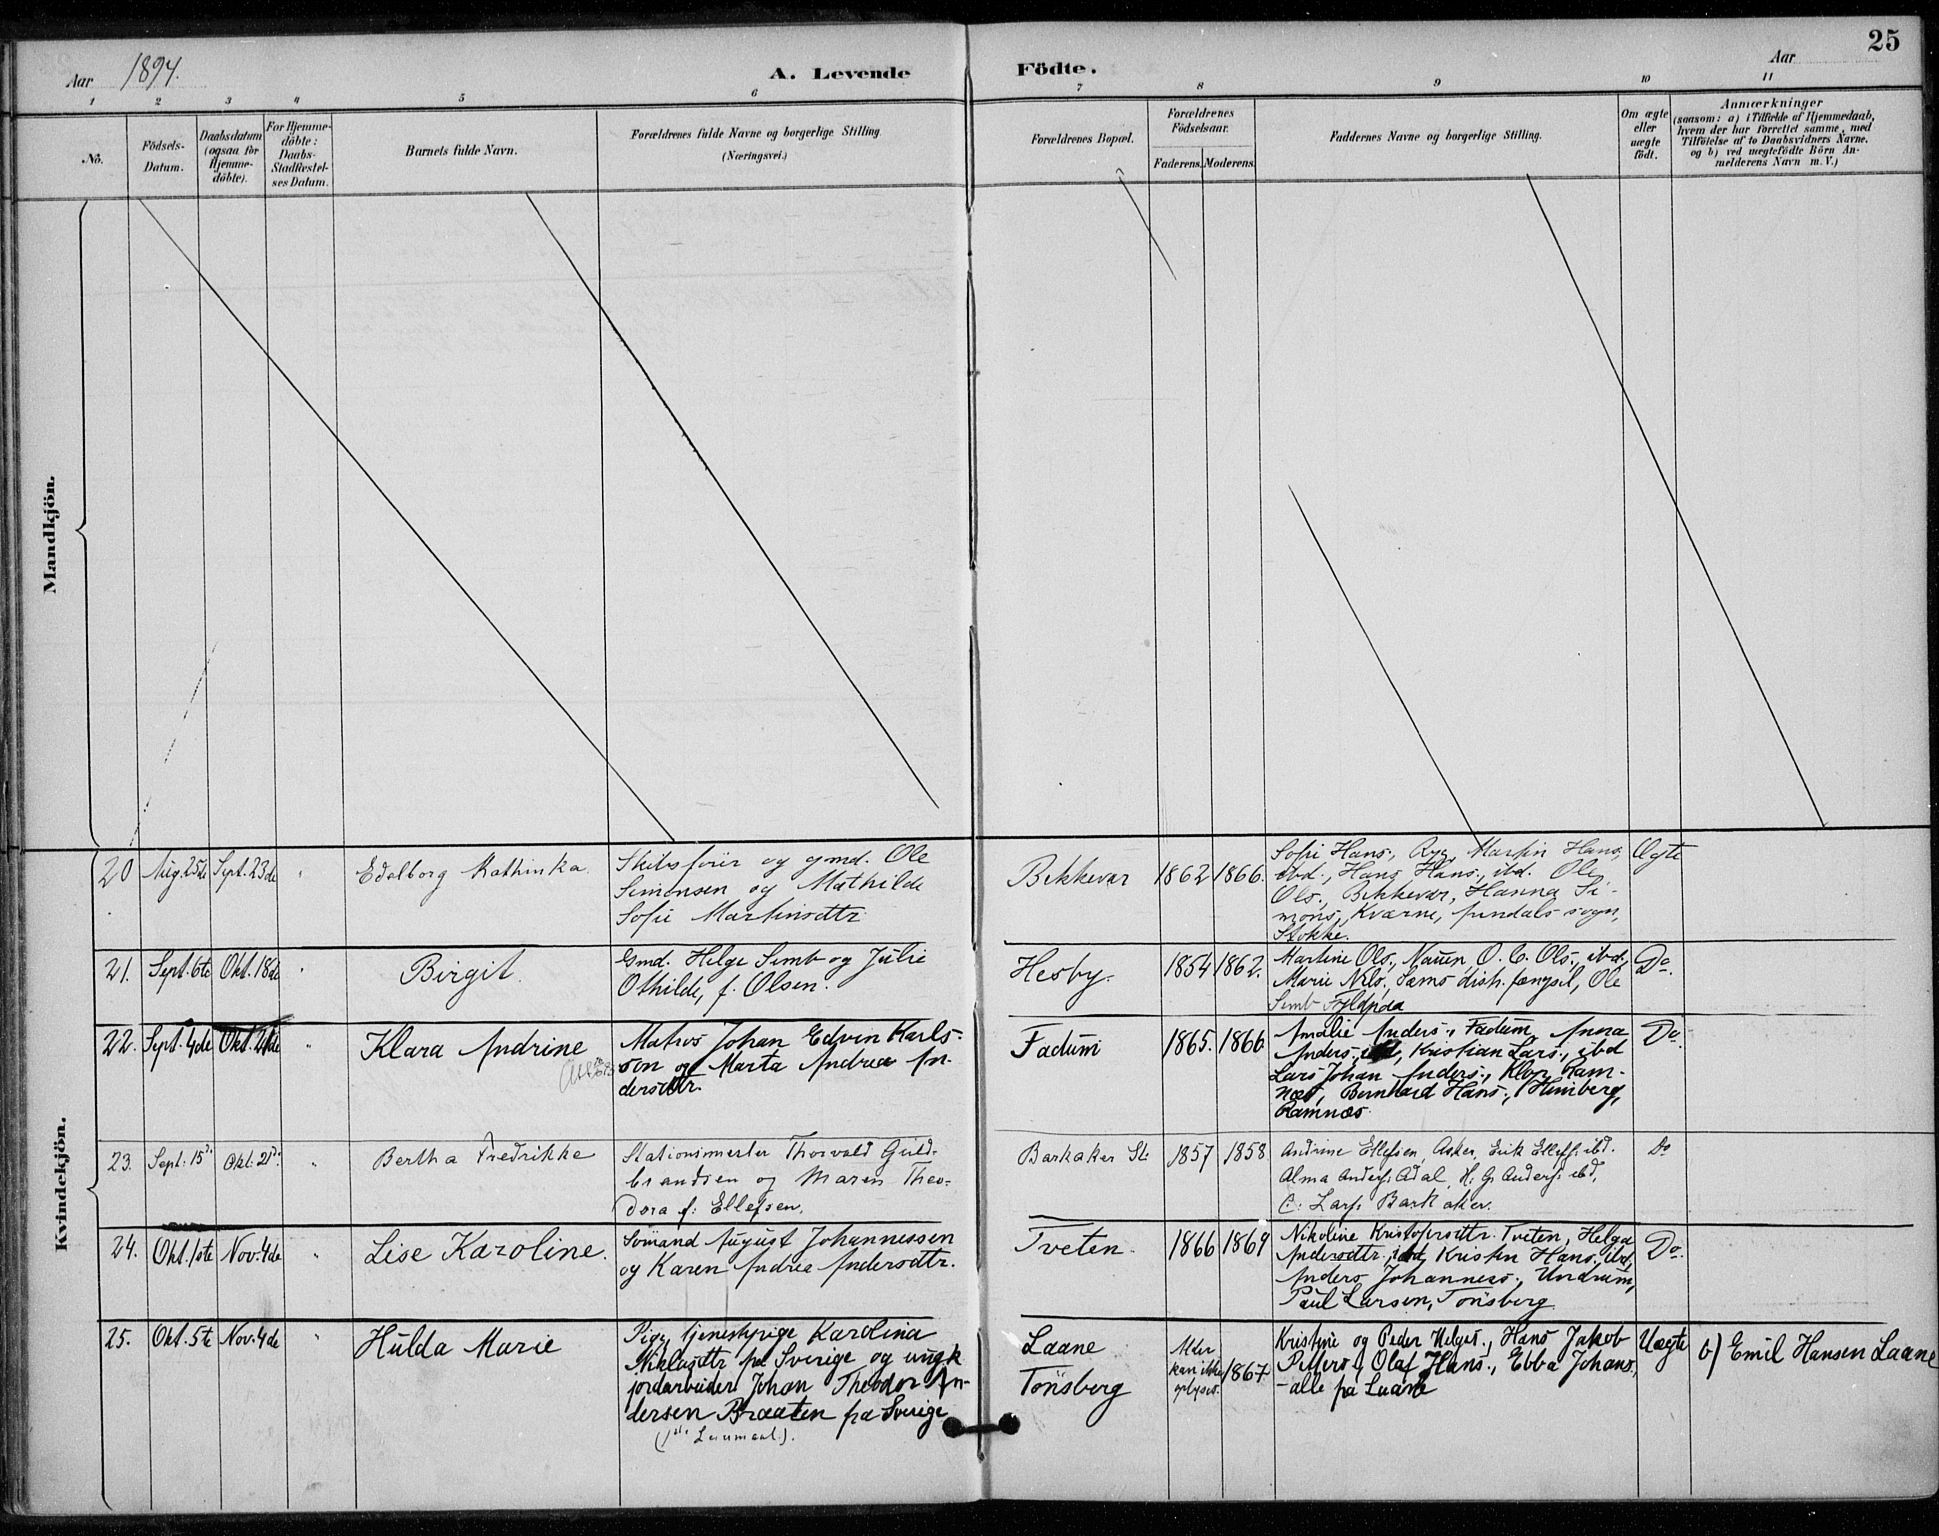 25
Aar 1894.
A. Levende Födte.
Aar
1 2 3 4 5 6 7 8 9 10 11
No.
Födsels-
Datum.
Daabsdatum
(ogsaa for
Hjemme-
döbte).
For Hjemme-
döbte:
Daabs-
Stadfæstel-
ses Datum.
Barnets fulde Navn.
Forældrenes fulde Navne og borgerlige Stilling.
(Næringsvei.)
Forældrenes Bopæl.
Forældrenes
Födselsaar.
Faderens. Moderens.
Faddernes Navne og borgerlige Stilling.
Om ægte
eller
uægte
födt.
Anmærkninger
(saasom: a) i Tilfælde af Hjemmedaab,
hvem der har forrettet samme, med
Tilföielse af to Daabsvidners Navne.
og b) ved uægtefödte Börn An-
melderens Navn m. V.)
Mandkjön.
Kvindekjön.
20 Aug. 25de Sept. 23de " Edelborg Kathinka.
Skibsförer og gmd. Ole
Simonsen og Mathilde
Sofie Martinsdtr.
Bekkevar 1862 1866.
Sofie Hans., Ryg, Martin Hans,
ibd., Hans Hans., ibd. Ole
Ols., Bekkevar, Hanna Si-
mons., Kværne, sogn,
Stokke.
Ægte
21. Sept. 6te Okt. 18de " Birgit.
Gmd. Helge Semb og Julie
Othilde, f. Olsen.
Hesby. 1854 1862.
Martine Ols., Nauen O. C. Ols., ibd.,
Marie Nils., Sems distr. fængsel, Ole
Semb
Do.
22. Sept. 4de Okt. 21de " Klara Andrine
Matros Johan Edvin Karls-
son og Marta Andrea An-
dersdtr.
Fadum 1865. 1866
Amalie Anders., Fadum, Anna
Anders., ibd, Kristian Lars., ibd
Lars Johan Anders., Klop Ram-
næs, Bernhard Hans., Himberg,
Ramnæs.
Do.
23. Sept: 15d: Okt. 21d: " Bertha Fredrikke
Stationsmester Thorvald Guld-
brandsen og Maren Theo-
dora f: Ellefsen.
Barkaker St: 1857 1858
Andrine Ellefsen, Asker, Erik Ellefs: ibd.
Alma Anders: Adal, H. G. Anders: ibd,
C: Lars: Barkaker.
Do
24. Okt. 1ste Nov. 4de " Lise Karoline.
Sömand August Johannessen
og Karen Andrea Andersdtr.
Tveten. 1866 1869
Nikoline Kristofersdtr. Tveten, Helga
Andersdtr., ibd, Kristin Hans., ibd,
Anders Johanness., Undrum,
Paul Larsen, Tönsberg
Do.
25. Okt. 5te Nov. 4de " Hulda Marie
Pige, tjenestepige Karolina
Niklasdtr fra Sverige og ungk
jordarbeider Johan Theodor An-
dersen Braaten fra Sverige
(1ste Leiermaal.).
Laane
Tönsberg
Alder
kan ikke
oplyses.
1867
Kristine og Peder Helges., Hans Jakob
Petters., Olaf Hans., Ebba Johans,
- alle fra Laane
Uægte
b) Emil Hansen Laane